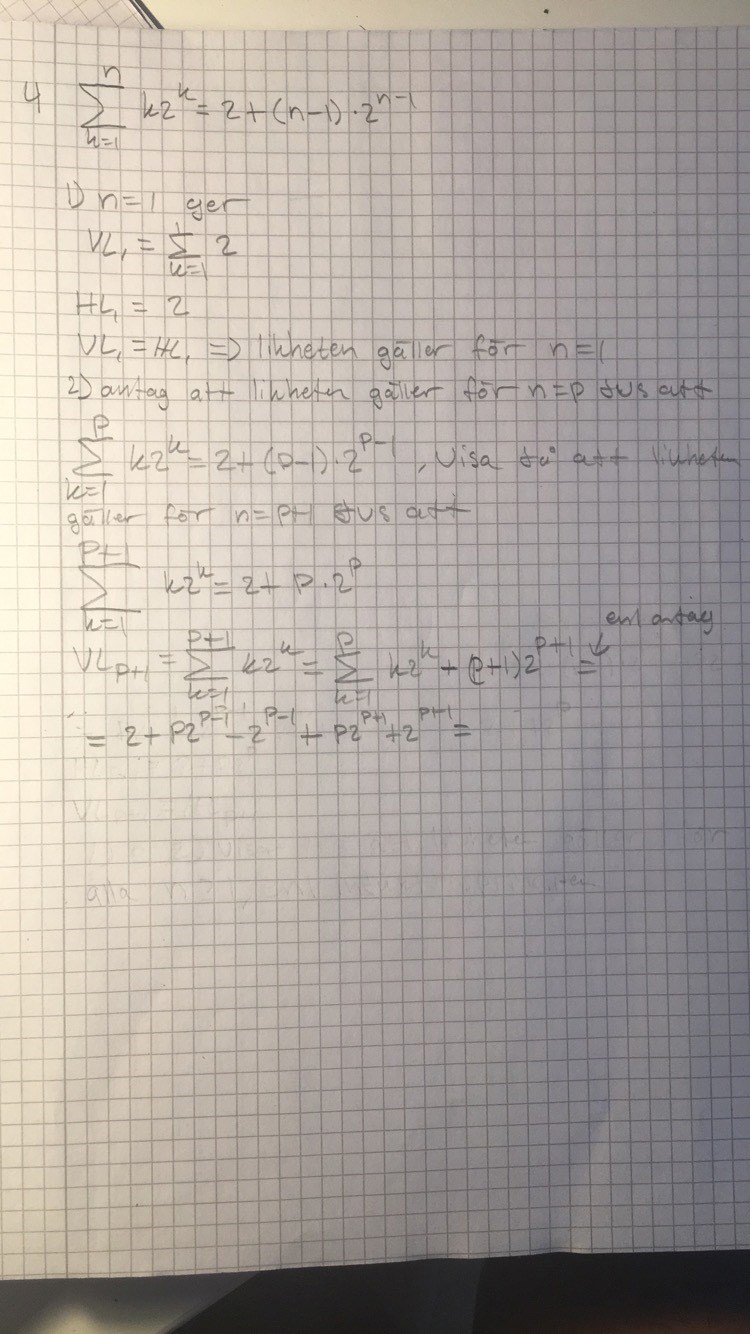 4 \sum_{k=1}^{n} k2^k = 2 + (n-1) \cdot 2^{n-1}
1) n=1 ger
VL_1 = \sum_{k=1}^{1} 2
HL_1 = 2
VL_1 = HL_1 => likheten gäller för n=1
2) antag att likheten gäller för n=p dvs att
\sum_{k=1}^{p} k2^k = 2 + (p-1) \cdot 2^{p-1}, visa då att likheten
gäller för n=p+1 dvs att
\sum_{k=1}^{p+1} k2^k = 2 + p \cdot 2^p
enl antag
VL_{p+1} = \sum_{k=1}^{p+1} k2^k = \sum_{k=1}^{p} k2^k + (p+1)2^{p+1} =
= 2 + p2^{p-1} - 2^{p-1} + p2^{p+1} + 2^{p+1} =